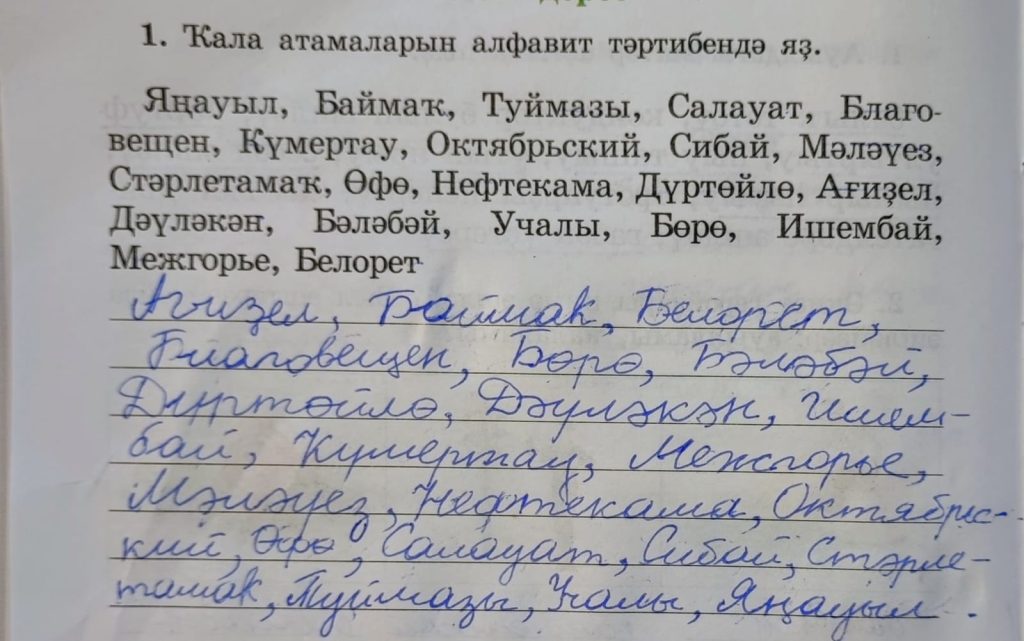 1. Ҡала атамаларын алфавит тәртибендә яҙ.
Яңауыл, Баймаҡ, Туймазы, Салауат, Благо-
вещен, Күмертау, Октябрьский, Сибай, Мәләүез,
Стәрлетамаҡ, Өфө, Нефтекама, Дүртөйлө, Ағиҙел,
Дәүләкән, Бәләбәй, Учалы, Бөрө, Ишембай,
Межгорье, Белорет
Ағиҙел, Баймак, Белорет,
Благовещен, Бөрө, Бәләбәй,
Дүртөйлө, Дәүләкән, Ишем-
бай, Күмертау, Межгорье,
Мәләүез, Нефтекама, Октябрьс-
кий, Өфө, Салауат, Сибай, Стәрле-
тамак, Туймазы, Учалы, Яңауыл.